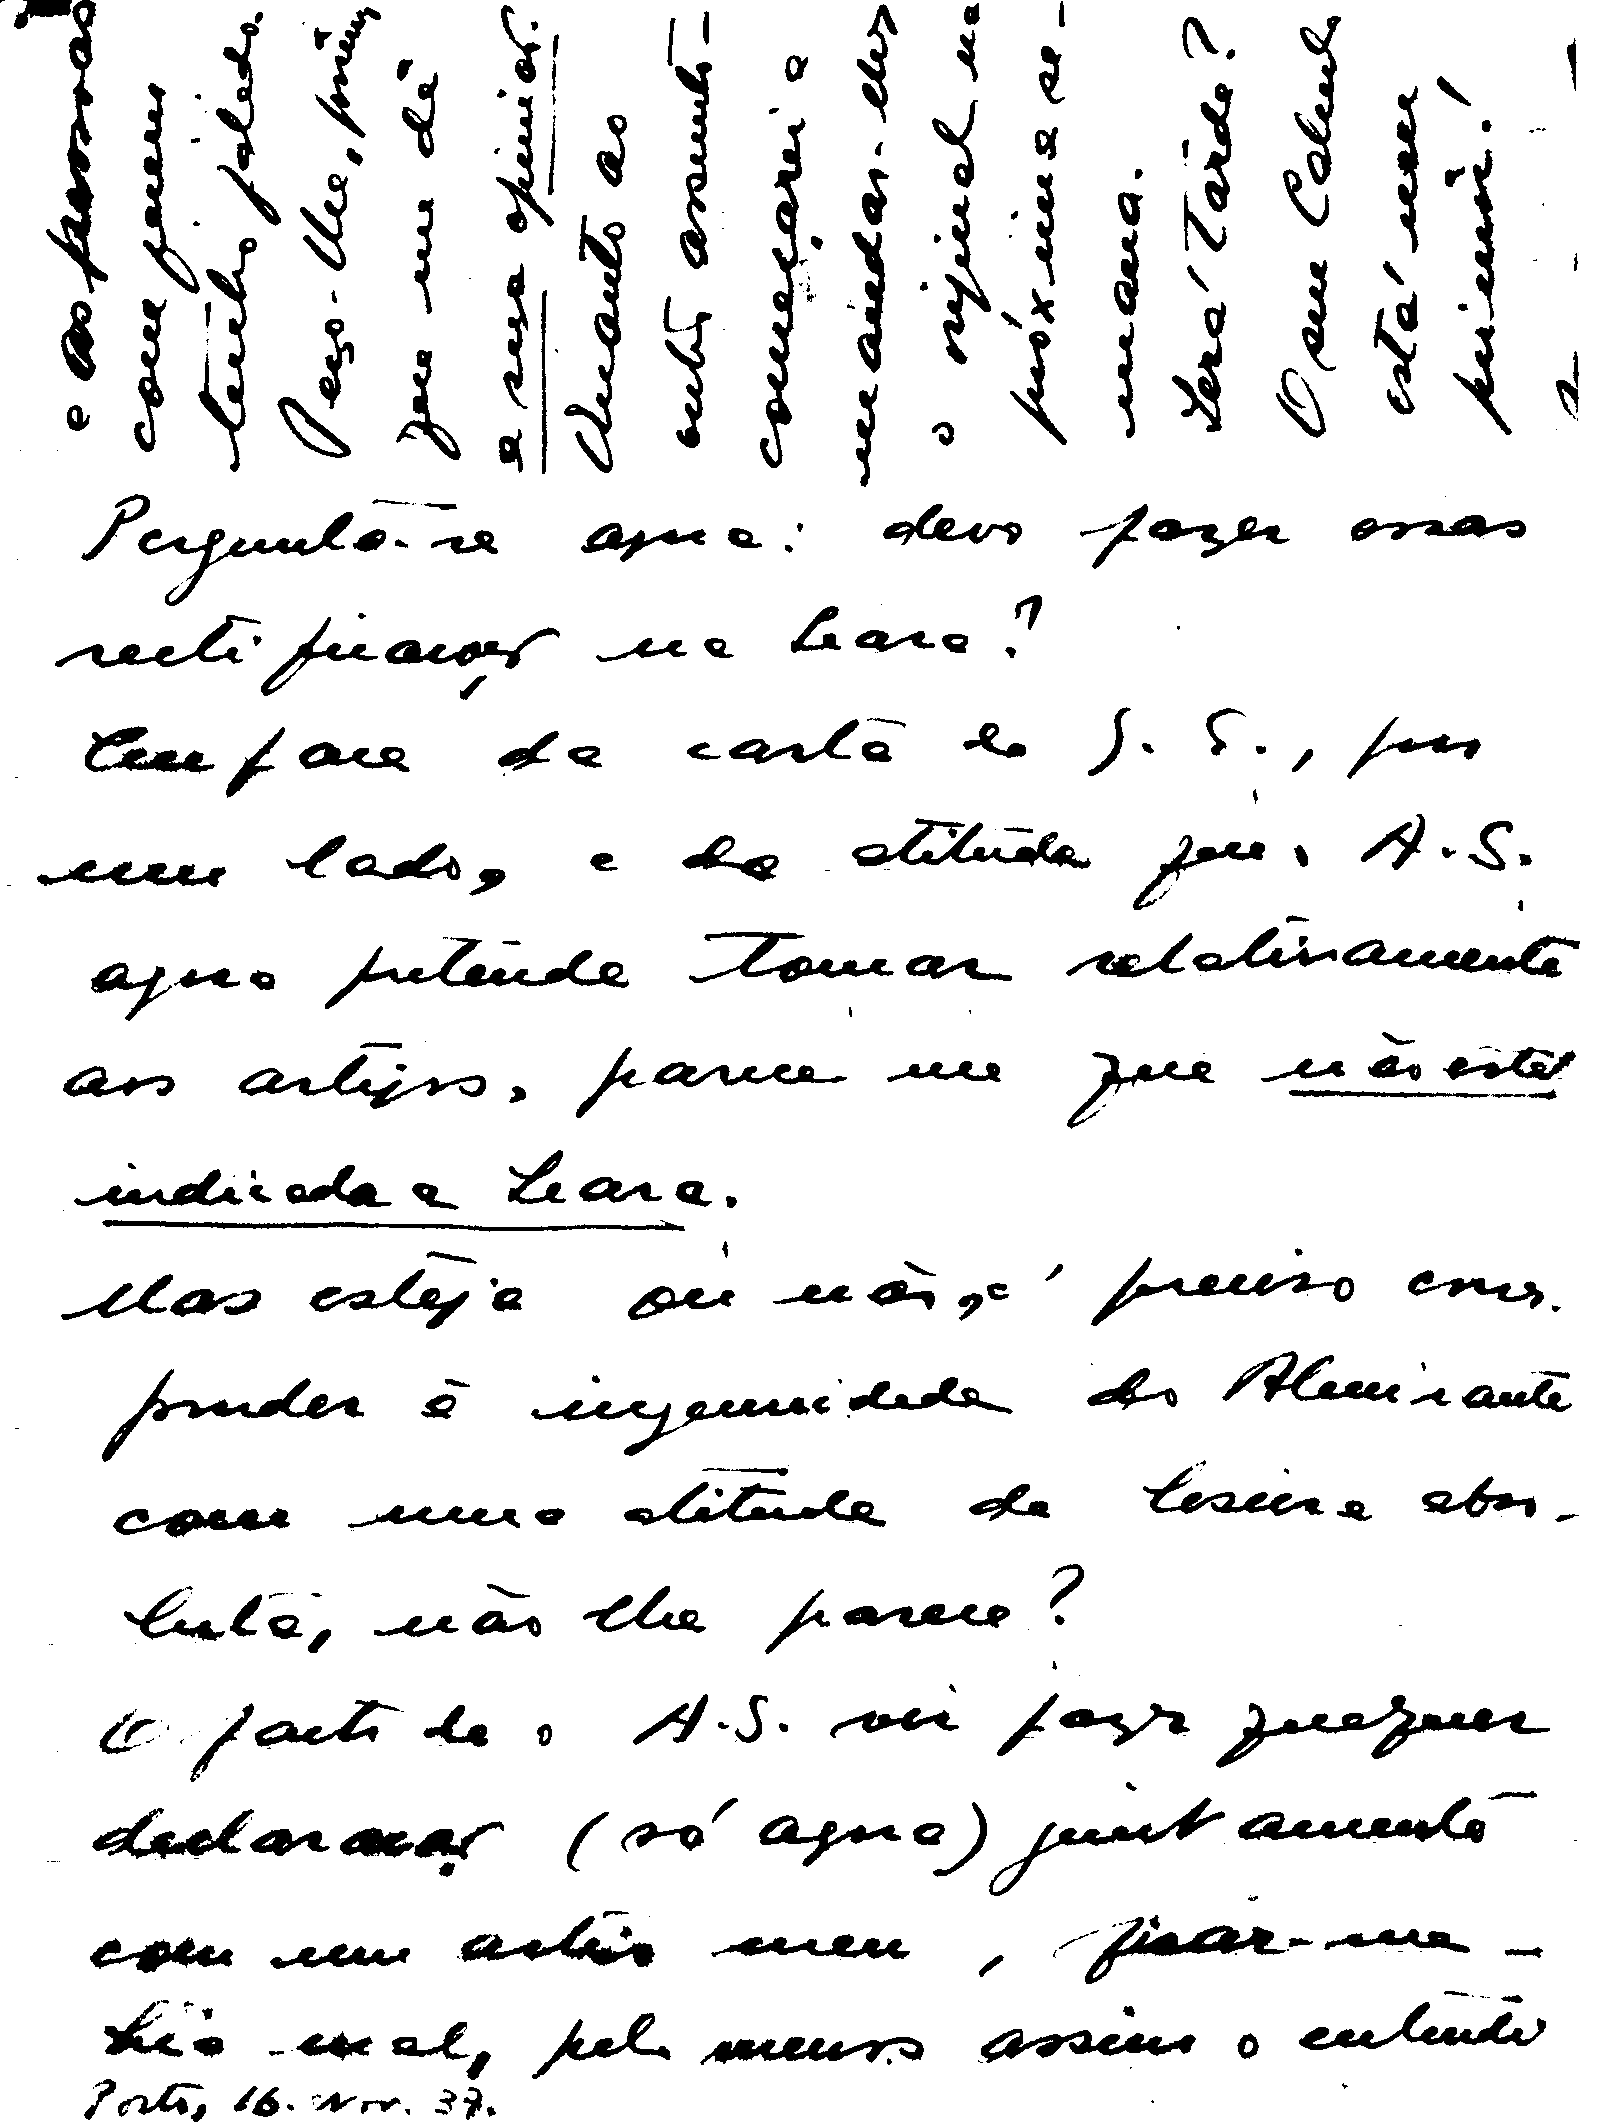 Pergunta-se agora: devo fazer essas
rectificações na Seara?
Em face da carta do S. S., por
um lado, e da atitude que o A. S.
agora pretende tomar relativamente
aos artigos, parece me que não está
indicada a Seara.
Mas esteja ou não, é preciso corres-
ponder à ingenuidade do Almirante
com uma atitude de lisura abso-
luta, não lhe parece?
O facto de o A. S. vir fazer quaisquer
declarações (só agora) juntamente
com um artigo meu, ficar-me-
hia mal, pelo menos assim o entendo
e as pessoas
com quem
tenho falado.
Peço-lhe, porém,
que me dê
a sua opinião.
Quanto ao
outro assunto -
começarei a
mandar-lhes
o original na
próxima se-
mana.
Será tarde?
O seu
está um
primor!
Porto, 16. Nov. 37.